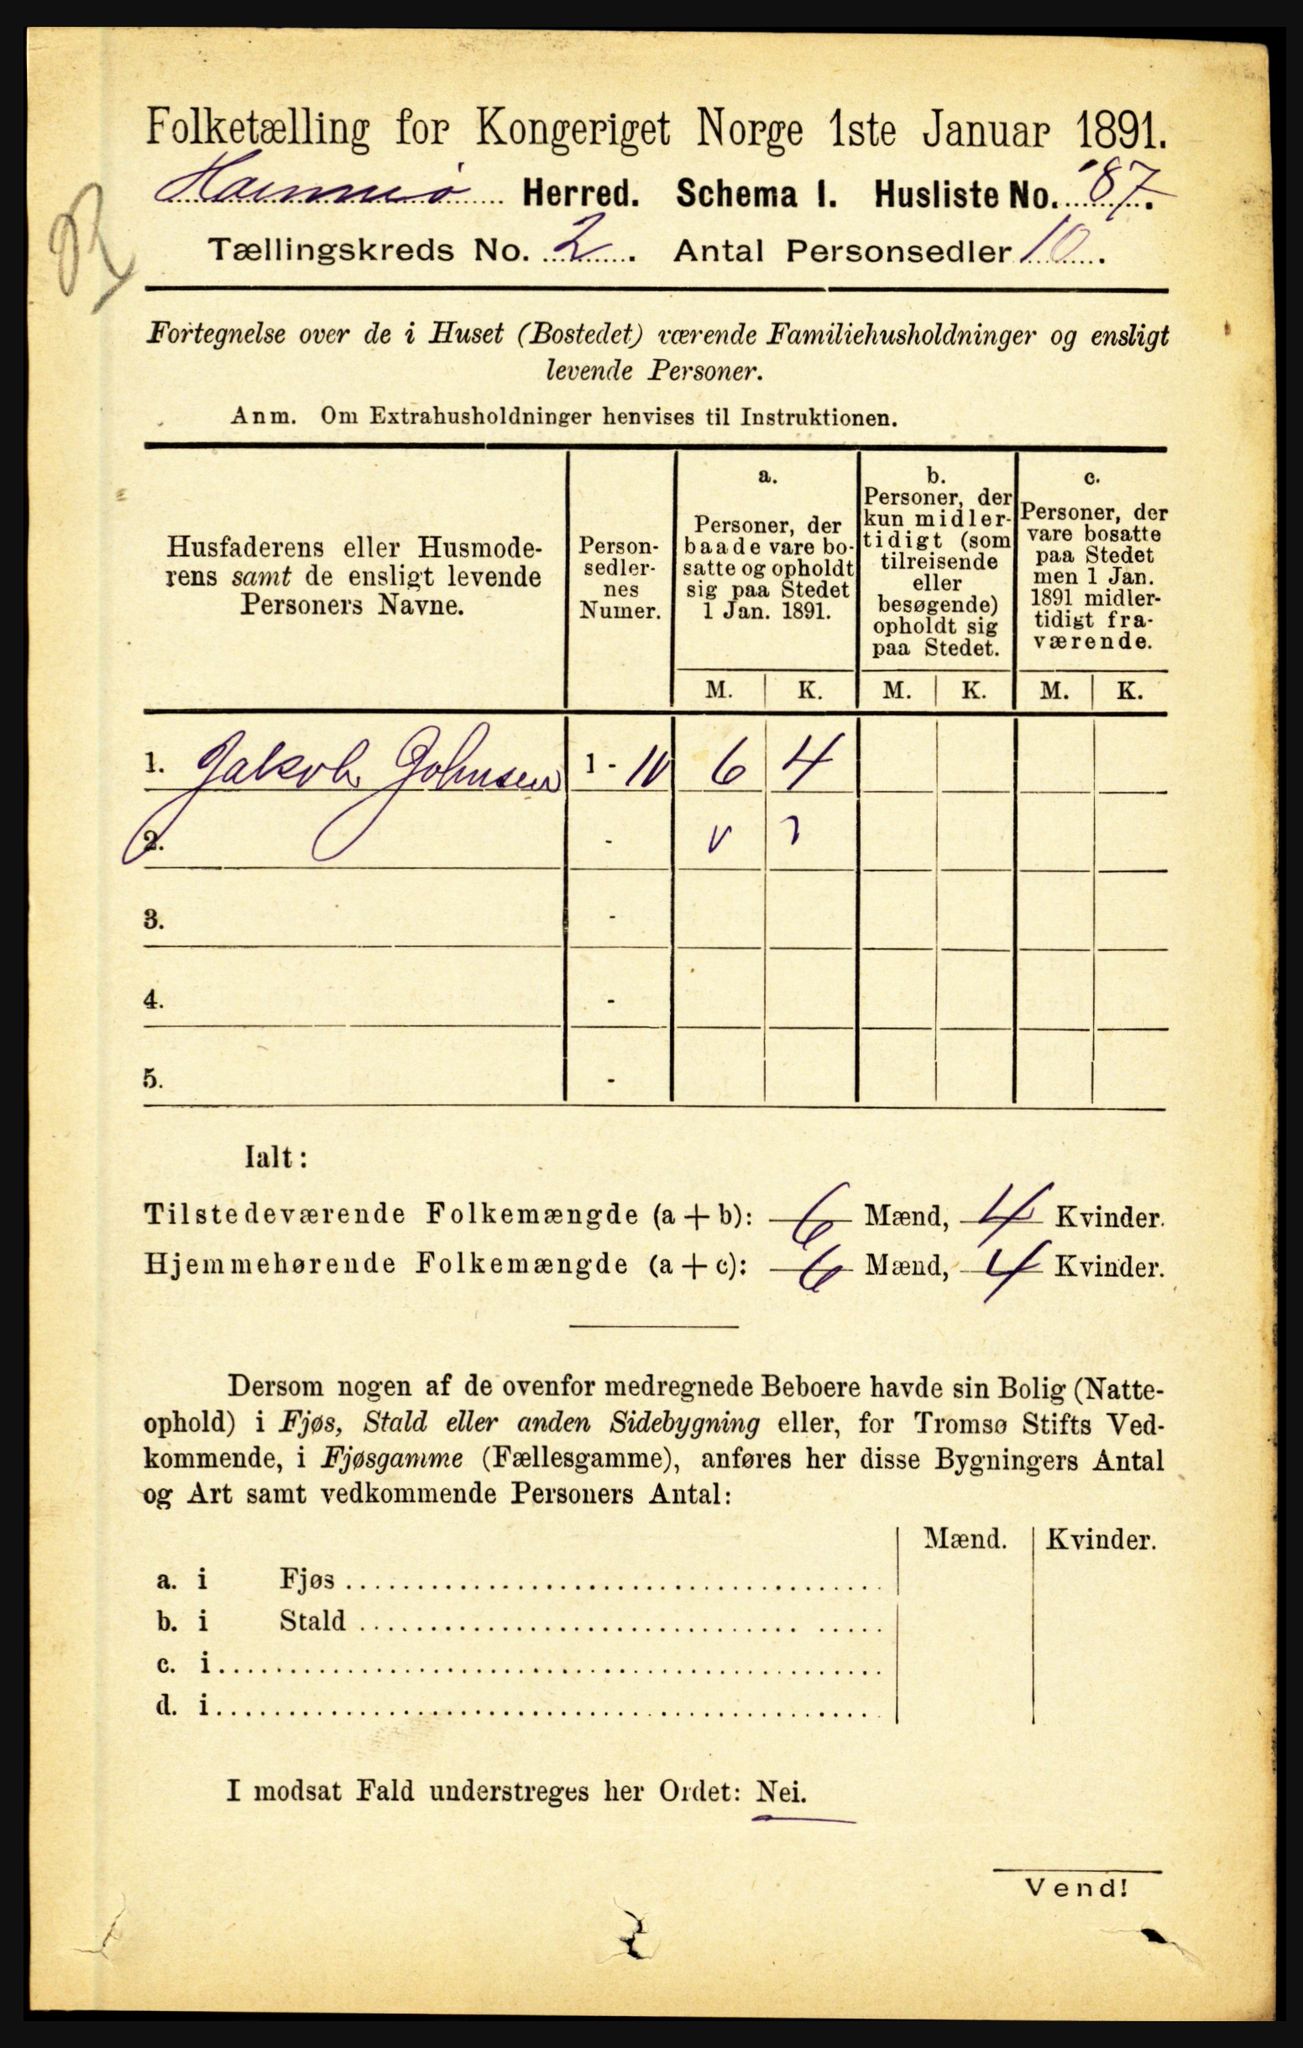 Folketælling for Kongeriget Norge 1ste Januar 1891.
Hammerø Herred. Schema I. Husliste No. 87.
Tællingskreds No. 2. Antal Personsedler 10.
Fortegnelse over de i Huset (Bostedet) værende Familiehusholdninger og ensligt
levende Personer.
Anm. Om Extrahusholdninger henvises til Instruktionen.
Husfaderens eller Husmode-
rens samt de ensligt levende
Personers Navne.
Person-
sedler-
nes
Numer.
a.
Personer, der
baade vare bo-
satte og opholdt
sig paa Stedet
1 Jan. 1891.
b.
Personer, der
kun midler-
tidigt (som
tilreisende
eller
besøgende)
opholdt sig
paa Stedet.
c.
Personer, der
vare bosatte
paa Stedet
men 1 Jan.
1891 midler-
tidigt fra-
værende.
M. K. M. K. M. K.
1. Jakob Johnsen 1 - 10 6 4
2. -
3. -
4. -
5. -
Ialt:
Tilstedeværende Folkemængde (a + b): 6 Mænd, 4 Kvinder.
Hjemmehørende Folkemængde (a + c): 6 Mænd, 4 Kvinder.
Dersom nogen af de ovenfor medregnede Beboere havde sin Bolig (Natte-
ophold) i Fjøs, Stald eller anden Sidebygning eller, for Tromsø Stifts Ved-
kommende, i Fjøsgamme (Fællesgamme), anføres her disse Bygningers Antal
og Art samt vedkommende Personers Antal:
Mænd. Kvinder.
a. i Fjøs
b. i Stald
c. i
d. i
I modsat Fald understreges her Ordet: Nei.
Vend!